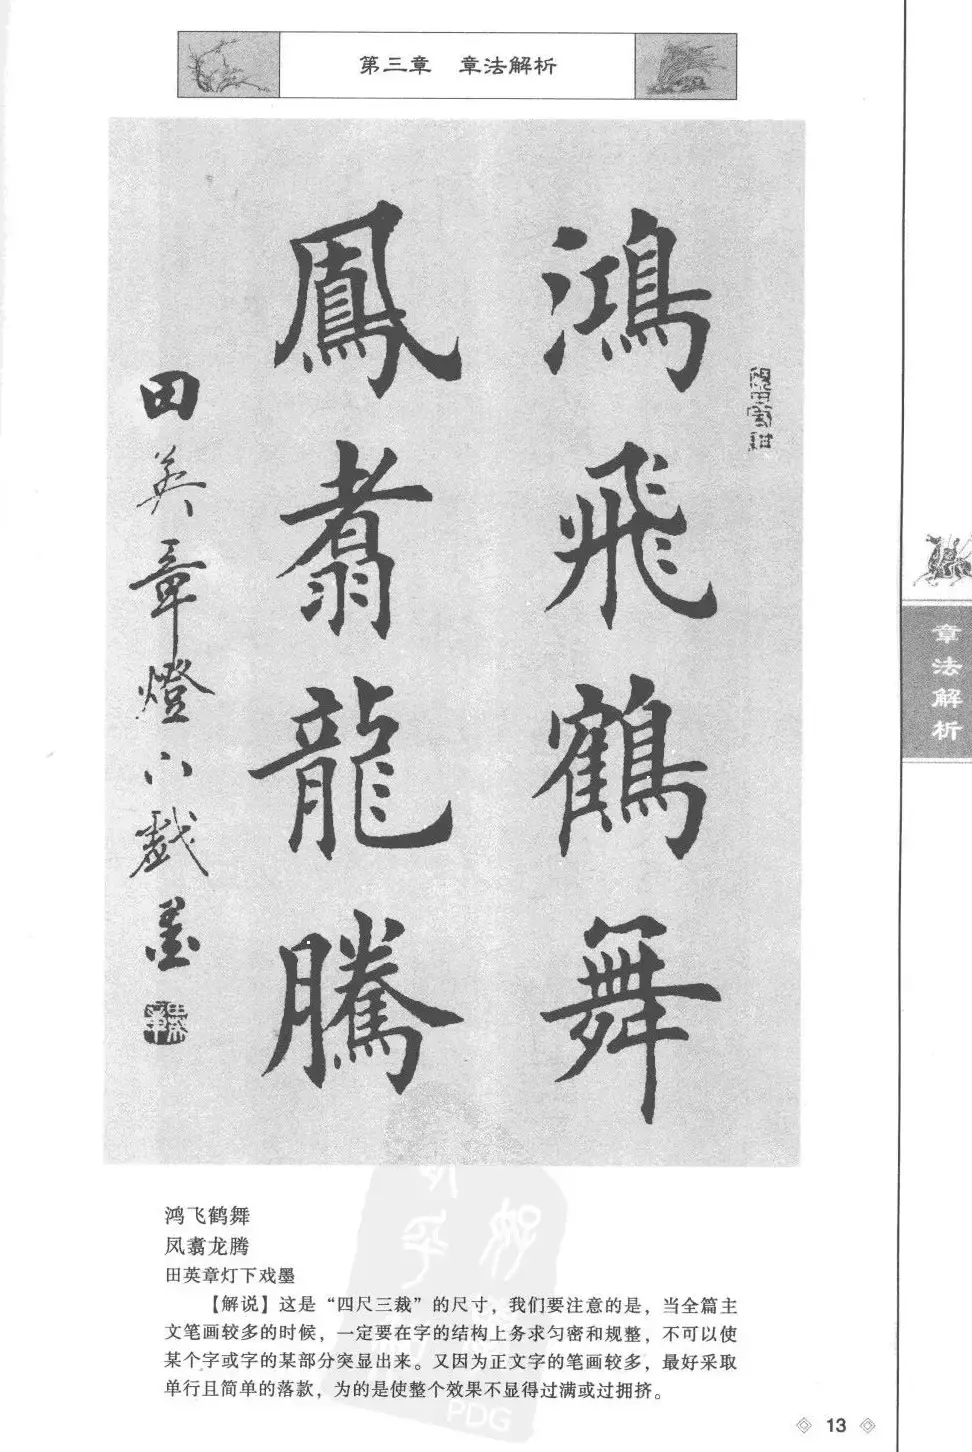 第三章 章法解析
鴻飛鶴舞
鳳翥龍騰
田英章燈下戲墨
章法解析
鸿飞鹤舞
凤翥龙腾
田英章灯下戏墨
【解说】这是“四尺三裁”的尺寸，我们要注意的是，当全篇主
文笔画较多的时候，一定要在字的结构上务求匀密和规整，不可以使
某个字或字的某部分突显出来。又因为正文字的笔画较多，最好采取
单行且简单的落款，为的是使整个效果不显得过满或过拥挤。
PDG
13